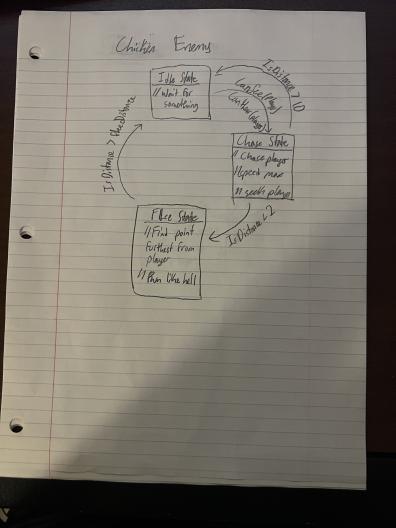 Chicken Enemy
Idle State
// wait for
something
IsDistance > 10
CanSee(Player)
CanHear(player)
Chase State
// Chase player
// speed max
// seek player
IsDistance < 2
Flee State
// Find point
furthest from
player
// Run like hell
IsDistance > FleeDistance